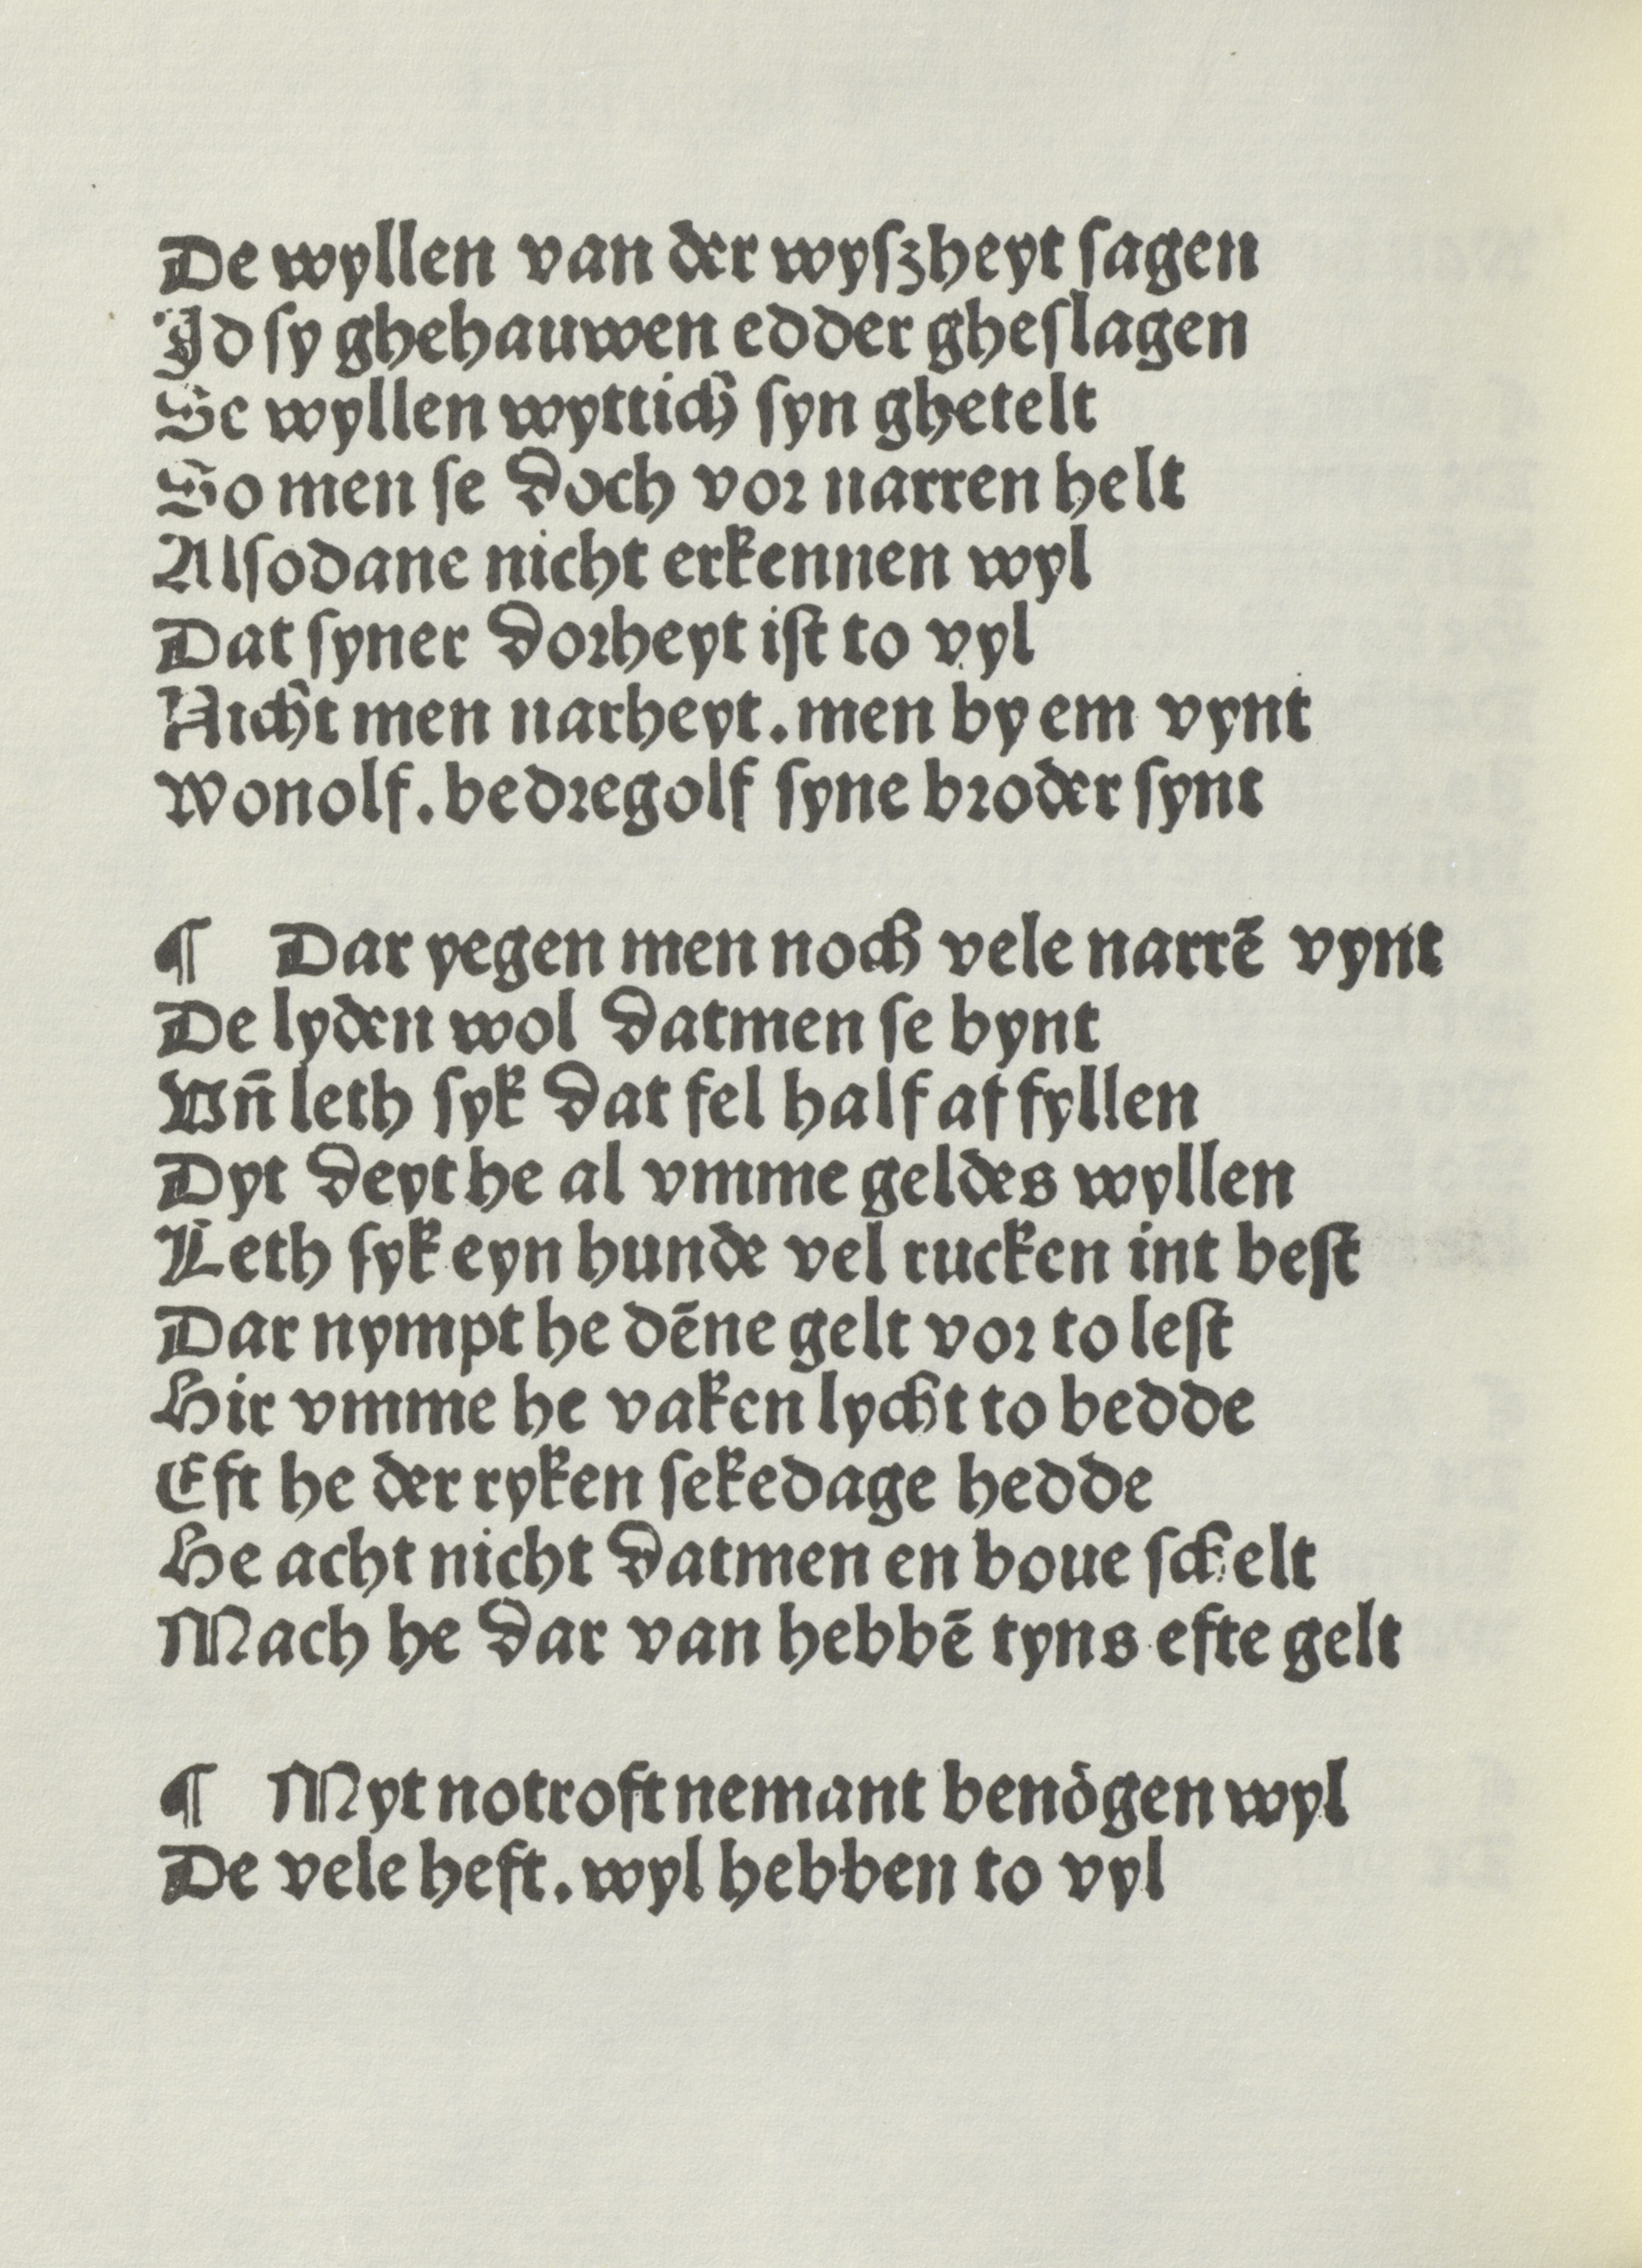 De wyllen van der wyſzheyt ſagen
Jd ſy ghehauwen edder gheſlagen
Se wyllen wyttich ſyn ghetelt
So men ſe doch vor narren helt
Alſodane nicht erkennen wyl
Dat ſyner dorheyt iſt to vyl
Nicht men narheyt. men by em vynt
Wonolf. bedregolf ſyne broder ſynt
¶ Dar yegen men noch vele narrē vynt
De lyden wol datmen ſe bynt
Vn̄ leth ſyk dat fel half af fyllen
Dyt deyt he al vmme geldes wyllen
Leth ſyk eyn hunde vel rucken int beſt
Dar nympt he dēne gelt vor to leſt
Hir vmme he vaken lycht to bedde
Eft he der ryken ſekedage hedde
He acht nicht datmen en boue ſchelt
Mach he dar van hebbē tyns efte gelt
¶ Myt notroft nemant benögen wyl
De vele heft. wyl hebben to vyl